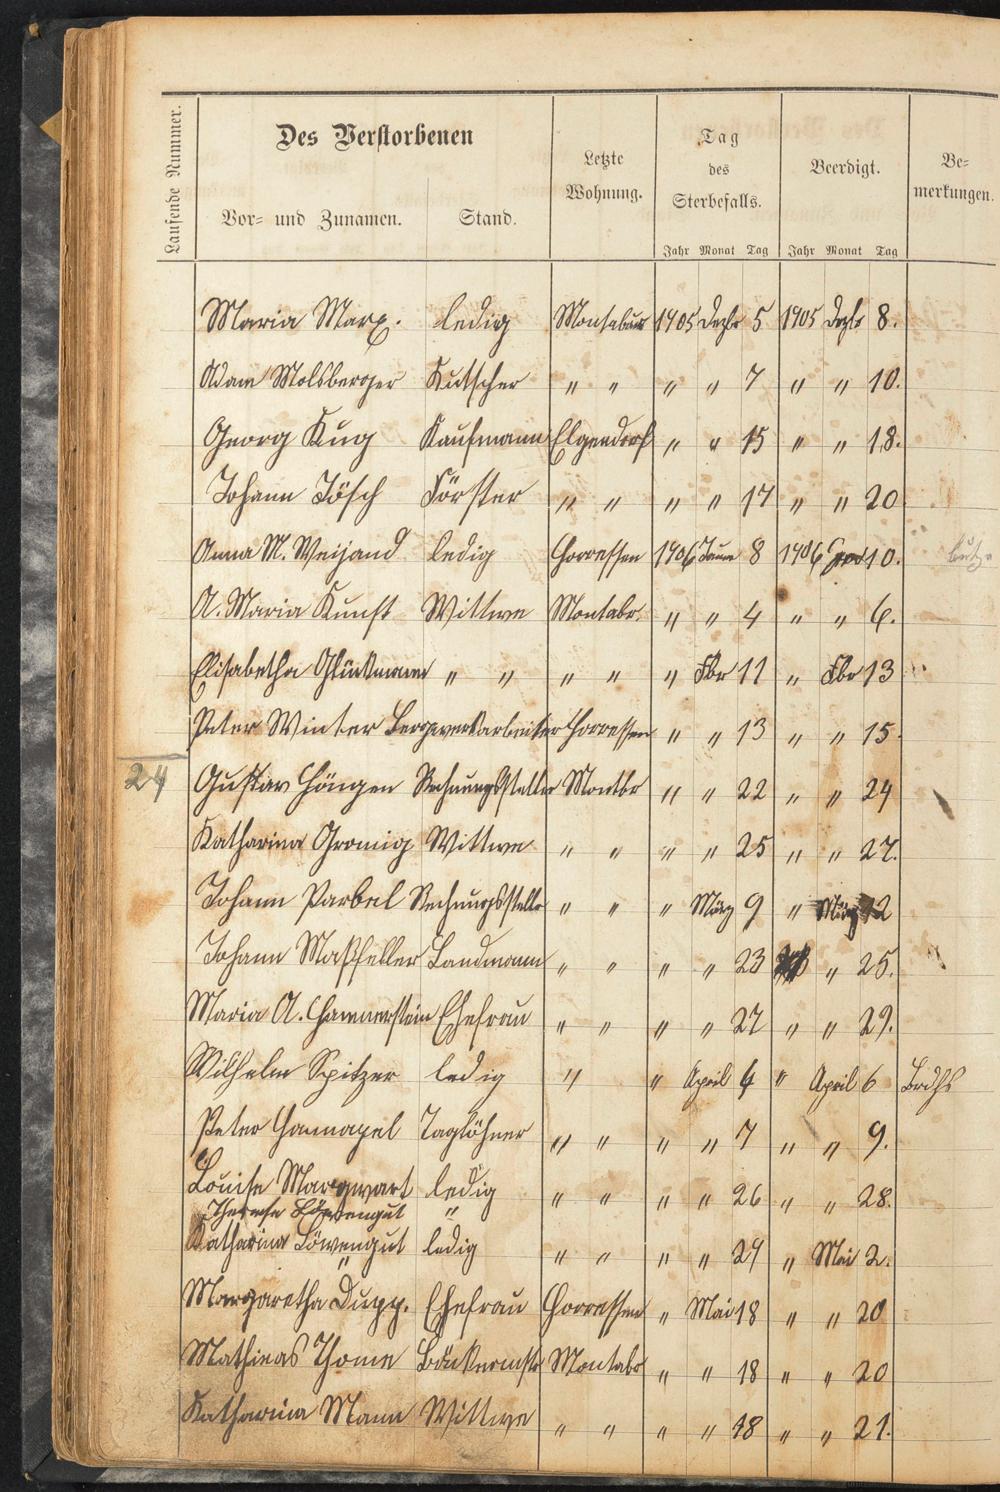 Laufende Nummer.
Des Verstorbenen
Vor- und Zunamen. Stand.
Letzte Wohnung.
Tag des Sterbefalls.
Beerdigt.
Be-
merkungen.
Jahr Monat Tag Jahr Monat Tag
Maria Marx. ledig Montabaur 1905 Dezbr 5 1905 Dezbr 8.
Adam Molsberger Kutscher " " " " 7 " " 10.
Georg Kug Kaufmann Elgendorf " " 15 " " 18.
Johann Tösch Förster " " " " 17 " " 20
Anna M. Weijand ledig Horressen 1906 Janu 8 1906 10.
A. Maria Kunst Wittwe Montabr. " " 4 " " 6.
Elisabetha Glückmann " " " " " Fbr 11 " Fbr 13
Peter Winter Bergwerksarbeiter Horressen " " 13 " " 15.
24 Gustav Höngen Rechnungssteller Montbr " " 22 " " 24
Katharina Gromig Wittwe " " " " 25 " " 27.
Johann Parbel Rechnungsstelle " " " März 9 " März 12
Johann Maßfeller Landmann " " " " 23 " 25.
Maria A. Hammerstein Ehefrau " " " " 27 " " 29.
Wilhelm Spitzer ledig " " April 4 " April 6 Brdhs
Peter Hannapel Taglöhner " " " " 7 " " 9.
Louise Marquart ledig " " " " 26 " " 28.
Therese Löwengut "
Katharina Löwengut ledig " " " " 29 " Mai 2.
Margaretha Dupp. Ehefrau Horressen " Mai 18 " " 20
Mathieas Thome Bäckermstr Montabr " " 18 " " 20
Katharina Mann Wittwe " " " " 18 " " 21.